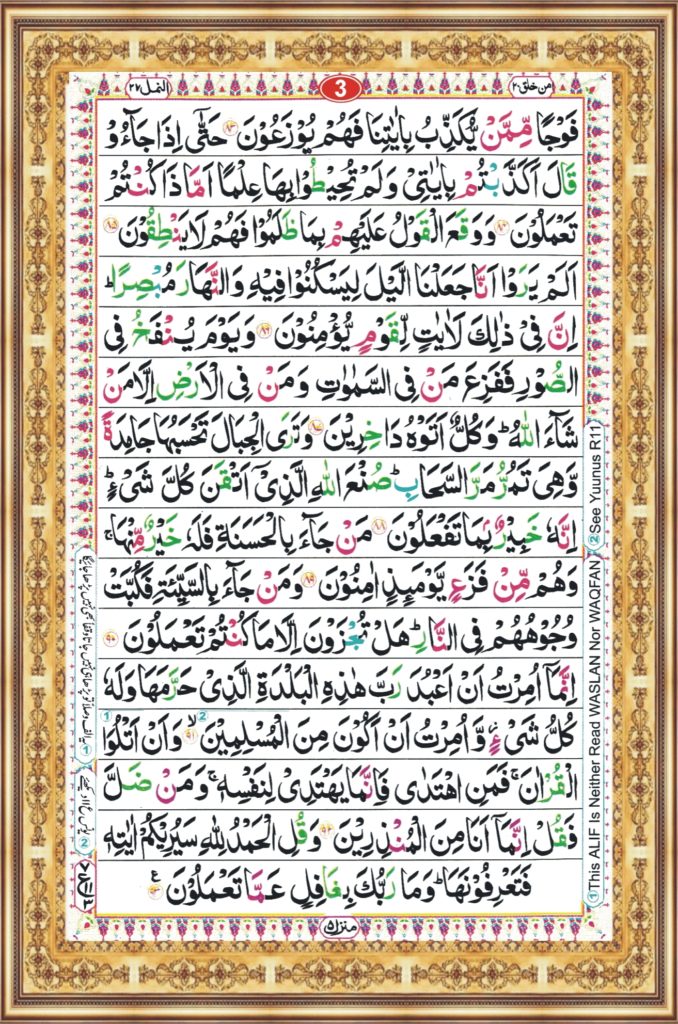 النمل ٢٧
3
امن خلق ٢٠
فَوْجًا مِّمَّنْ يُّكَذِّبُ بِاٰيٰتِنَا فَهُمْ يُوْزَعُوْنَ ﴿۸۳﴾ حَتّٰٓى اِذَا جَآءُوْ
قَالَ اَكَذَّبْتُمْ بِاٰيٰتِيْ وَلَمْ تُحِيْطُوْا بِهَا عِلْمًا اَمَّاذَا كُنْتُمْ
تَعْمَلُوْنَ ﴿۸۴﴾ وَوَقَعَ الْقَوْلُ عَلَيْهِمْ بِمَا ظَلَمُوْا فَهُمْ لَا يَنْطِقُوْنَ ﴿۸۵﴾
اَلَمْ يَرَوْا اَنَّا جَعَلْنَا الَّيْلَ لِيَسْكُنُوْا فِيْهِ وَالنَّهَارَ مُبْصِرًا ؕ
اِنَّ فِيْ ذٰلِكَ لَاٰيٰتٍ لِّقَوْمٍ يُّؤْمِنُوْنَ ﴿۸۶﴾ وَيَوْمَ يُنْفَخُ فِي
الصُّوْرِ فَفَزِعَ مَنْ فِي السَّمٰوٰتِ وَمَنْ فِي الْاَرْضِ اِلَّا مَنْ
شَآءَ اللّٰهُ ؕ وَكُلٌّ اَتَوْهُ دَاخِرِيْنَ ﴿۸۷﴾ وَتَرَى الْجِبَالَ تَحْسَبُهَا جَامِدَةً
وَّهِيَ تَمُرُّ مَرَّ السَّحَابِ ؕ صُنْعَ اللّٰهِ الَّذِيْٓ اَتْقَنَ كُلَّ شَيْءٍ ؕ
اِنَّهٗ خَبِيْرٌۢ بِمَا تَفْعَلُوْنَ ﴿۸۸﴾ مَنْ جَآءَ بِالْحَسَنَةِ فَلَهٗ خَيْرٌ مِّنْهَا ۚ
وَهُمْ مِّنْ فَزَعٍ يَّوْمَىِٕذٍ اٰمِنُوْنَ ﴿۸۹﴾ وَمَنْ جَآءَ بِالسَّيِّئَةِ فَكُبَّتْ
وُجُوْهُهُمْ فِي النَّارِ ؕ هَلْ تُجْزَوْنَ اِلَّا مَا كُنْتُمْ تَعْمَلُوْنَ ﴿۹۰﴾
اِنَّمَآ اُمِرْتُ اَنْ اَعْبُدَ رَبَّ هٰذِهِ الْبَلْدَةِ الَّذِيْ حَرَّمَهَا وَلَهٗ
كُلُّ شَيْءٍ ؗ وَّاُمِرْتُ اَنْ اَكُوْنَ مِنَ الْمُسْلِمِيْنَ ﴿۹۱﴾ 2 وَاَنْ اَتْلُوَا 1
الْقُرْاٰنَ ۚ فَمَنِ اهْتَدٰى فَاِنَّمَا يَهْتَدِيْ لِنَفْسِهٖ ۚ وَمَنْ ضَلَّ
فَقُلْ اِنَّمَآ اَنَا مِنَ الْمُنْذِرِيْنَ ﴿۹۲﴾ وَقُلِ الْحَمْدُ لِلّٰهِ سَيُرِيْكُمْ اٰيٰتِهٖ
فَتَعْرِفُوْنَهَا ؕ وَمَا رَبُّكَ بِغَافِلٍ عَمَّا تَعْمَلُوْنَ ﴿۹۳﴾ ع
منزل ٥
1 This ALIF Is Neither Read WASLAN Nor WAQFAN 2 See Yuunus R11